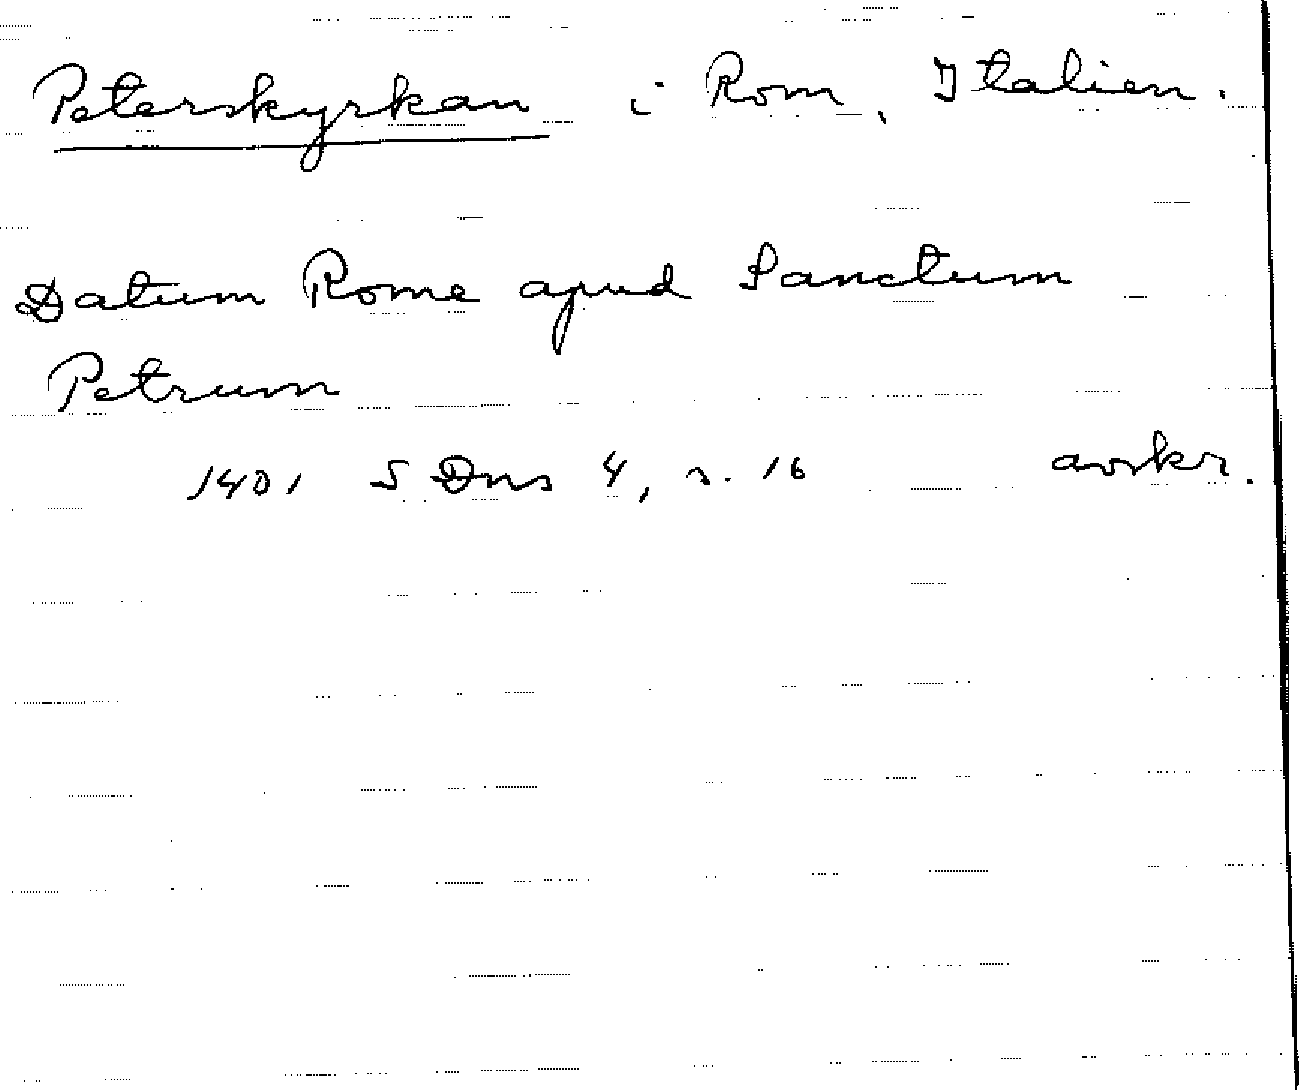 Peterskyrkan i Rom, Italien.
Datum Rome apud Sanctum
Petrum
1401 SDns 4, s. 16 avskr.